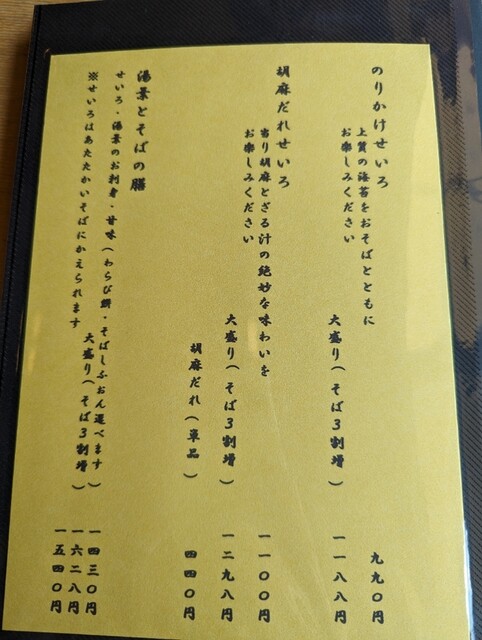 のりかけせいろ 九九〇円
上質の海苔をおそばとともに
お楽しみください
大盛り(そば3割増) 一一八八円
胡麻だれせいろ
当り胡麻とざる汁の絶妙な味わいを 一一〇〇円
お楽しみください
大盛り(そば3割増) 一二九八円
胡麻だれ(単品) 四四〇円
湯葉とそばの膳
せいろ・湯葉のお刺身・甘味(わらび餅・そばしふおん選べます) 一四三〇円
大盛り(そば3割増) 一六二八円
※せいろはあたたかいそばにかえられます 一五四〇円